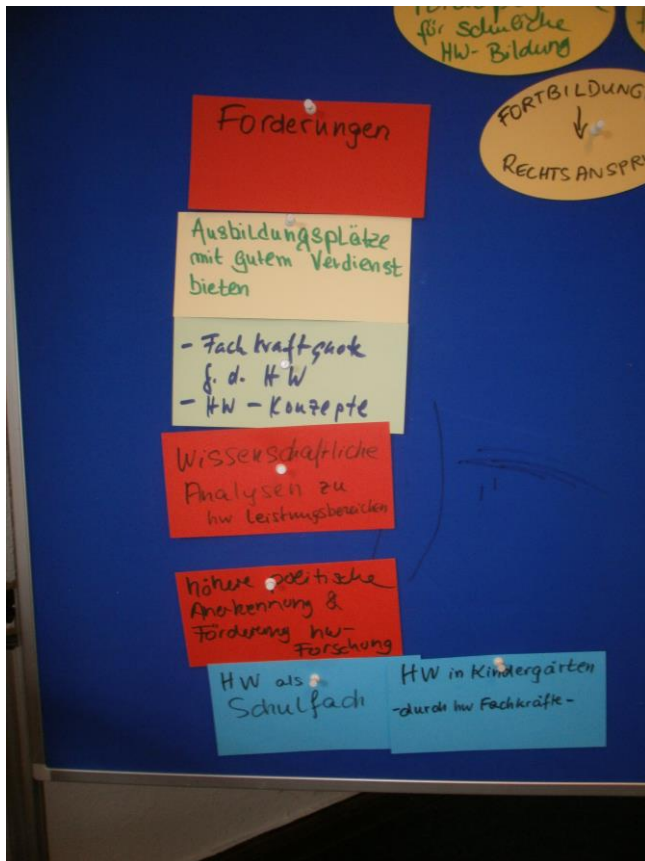 für schulische
HW-Bildung
FORTBILDUNG
↓
RECHTSANSPR
Forderungen
Ausbildungsplätze
mit gutem Verdienst
bieten
- Fachkraftquote
f. d. HW
- HW - Konzepte
Wissenschaftliche
Analysen zu
hw Leistungsbereichen
höhere politische
Anerkennung &
Förderung hw-
Forschung
HW als
Schulfach
HW in Kindergärten
- durch hw Fachkräfte -